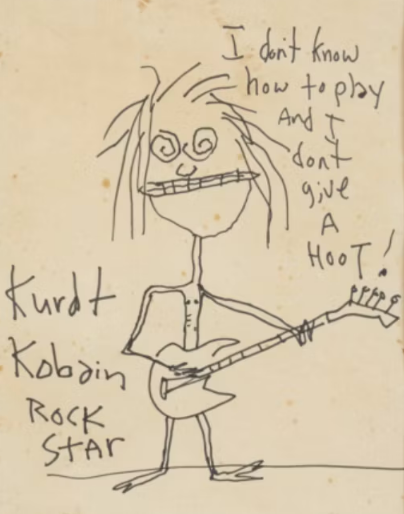 I don't know
how to play
And I
don't
give
A
HOOT!
Kurdt
Kobain
ROCK
STAR